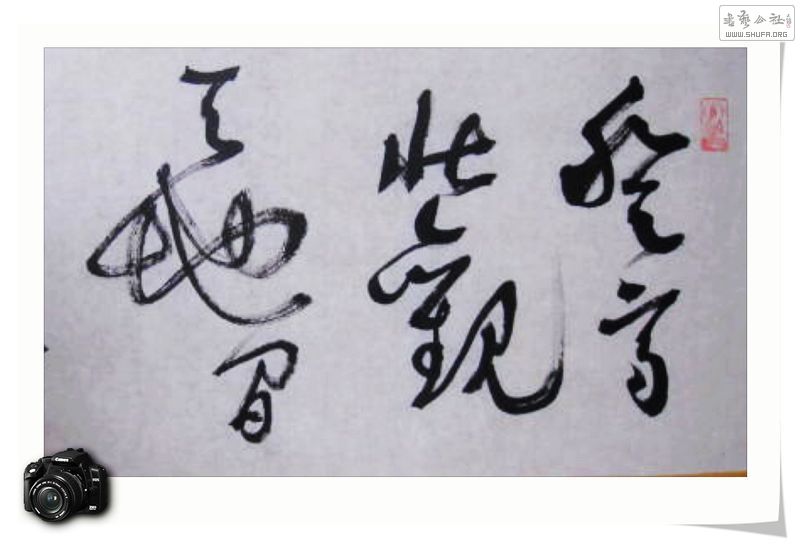 登高
壮觀
天地間
書藝公社
WWW.SHUFA.ORG
Canon